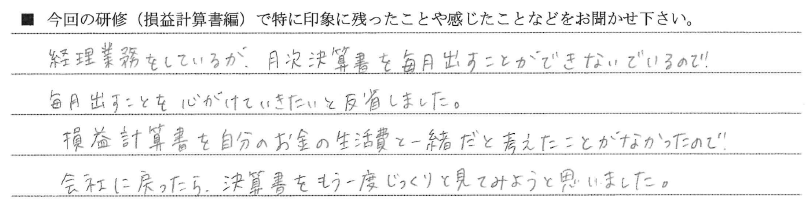 ■ 今回の研修（損益計算書編）で特に印象に残ったことや感じたことなどをお聞かせ下さい。
経理業務をしているが、月次決算書を毎月出すことができないでいるので、
毎月出すことを心がけていきたいと反省しました。
損益計算書を自分のお金の生活費と一緒だと考えたことがなかったので、
会社に戻ったら、決算書をもう一度じっくりと見てみようと思いました。